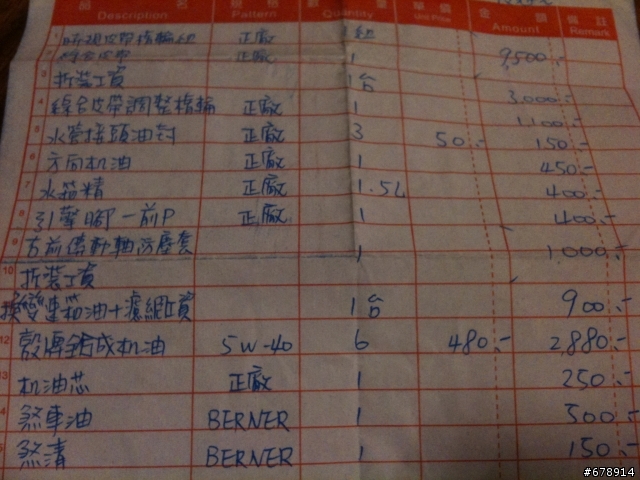 品名 規格 數量 單價 金額 備註
Description Pattern Quantity Unit Price Amount Remark
1 時規皮帶惰輪組 正廠 1組
2 綜合皮帶 正廠 1 9,500.-
3 拆裝工資 1台
4 綜合皮帶調整惰輪 正廠 1 3,000.-
5 水管接頭油封 正廠 3 50.- 150.-
1,100.-
6 方向机油 正廠 1 450.-
7 水箱精 正廠 1.5L 400.-
8 引擎腳一前P 正廠 1 400.-
9 右前傳動軸防塵套 1 1,000.-
10 拆裝工資
換變速箱油+濾網工資 1台 900.-
12 殼牌合成机油 5W-40 6 480.- 2,880.-
13 机油芯 正廠 1 250.-
4 煞車油 BERNER 1 500.-
5 煞清 BERNER 1 150.-
#678914